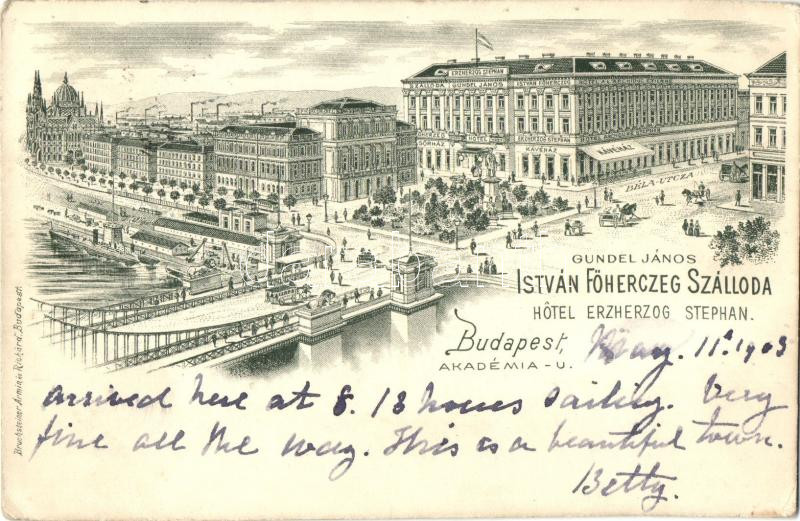 ERZHERZOG STEPHAN
SZÁLLODA GUNDEL JÁNOS
ISTVÁN FŐHERCZEG
SÖRHÁZ
ERZHERZOG STEPHAN
KÁVÉHÁZ
KÁVÉHÁZ
BÉLA-UTCZA
GUNDEL JÁNOS
ISTVÁN FŐHERCZEG SZÁLLODA
HÔTEL ERZHERZOG STEPHAN.
Budapest,
AKADÉMIA-U.
May. 11. 1903
arrived here at 8. 13 hours sailing. Very
fine all the way. This is a beautiful town.
Betty.
Bruchsteiner Ármin és Richárd, Budapest.